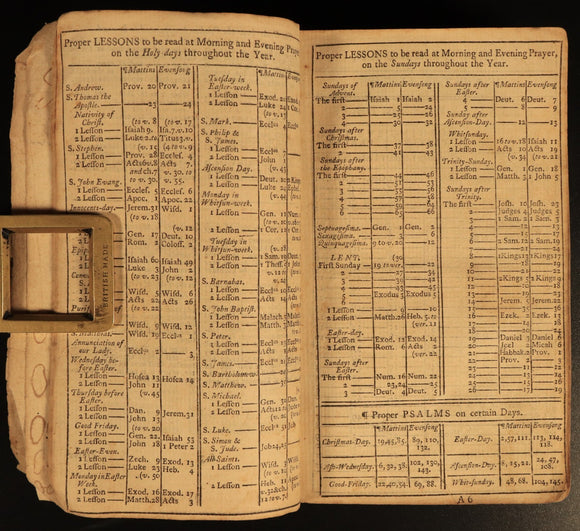 Proper LESSONS to be read at Morning and Evening Prayer,
on the Holy-days throughout the Year.
¶Mattins Evensong
S. Andrew. Prov. 20 Prov. 21
S. Thomas the
Apostle. 23 24
Nativity of
Christ. (to v. 8 (to v. 17
1 Lesson Isaiah 9. Isa.7.v.10
2 Lesson Luke 2.to Titus 3.v.
S. Stephen. (v. 15 (4 to v. 9
1 Lesson Prov. 28 Ecclef. 4
2 Lesson Acts 6v.8 Acts 7.
and ch.7 v. 30. to
to v. 30. v. 55.
S. John Evang.
1 Lesson Ecclef. 5 Ecclef. 6
2 Lesson Apoc. 1 Apoc. 22
Innocents-day. Jerem.31 Wifd. 1
(to v. 18
(v. 12
Gen. 17 Deut. 10
Rom. 2 Coloff. 2
Isaiah 60 Isaiah 49
Luke 3 John 2
(to v. 23 (to v. 12
Wifd. 5 Wifd. 6
Acts 22 Acts 26
(to v. 22
Wifd. 9 Wifd. 12
Wifd. 19 Eccl. 1
Annunciation of
our Lady. Eccl. 2 3
Wednesday be-
fore Easter.
1 Lesson Hosea 13 Hosea 14
2 Lesson John 11
Thursday before (v. 45
Easter.
1 Lesson Dan. 9 Jerem.31
2 Lesson John 13
Good Friday.
1 Lesson Gen. 22. Isaiah 53
2 Lesson John 18 1 Peter 2
Easter-Even.
1 Lesson Zech. 9 Exod. 13
2 Lesson Luke 23 Heb. 4
Monday in Easter (v. 50
Week.
1 Lesson Exod. 16 Exod. 17
2 Lesson Matth.28 Acts 3
BRITISH MADE
¶Mattins
Tuesday in
Easter-week.
1 Lesson Exod. 20
2 Lesson Luke 24
(to v. 13
S. Mark.
S. Philip &
S. James.
1 Lesson
2 Lesson John 1
Ascension Day. (v. 43
1 Lesson Deut. 10
2 Lesson Luke 24
Monday in (v. 44
Whitsun-week.
1 Lesson Gen. 11
2 Lesson 1 Cor. 12
Tuesday in
Whitsun-week.
1 Lesson 1 Sam. 19
2 Lesson 1 Thess. 5
S. Barnabas.
1 Lesson
2 Lesson Acts 14
S. John Baptist.
1 Lesson Malach. 3
2 Lesson Matth. 3
S. Peter.
1 Lesson
2 Lesson Acts 3
S. James.
S. Bartholomew
S. Matthew. 35
S. Michael.
1 Lesson Gen. 32
2 Lesson Acts 12
S. Luke.
S. Simon &
S. Jude. Job 24,25
All-Saints.
1 Lesson Wifd. 3
2 Lesson Heb. 11
Proper LESSONS to be read at Morning and Evening Prayer,
on the Sundays throughout the Year.
Sundays of ¶Mattins Evensong
Advent.
The first Isaiah 1 Isaiah 2
2 5 24
3 25 26
4 30 32
Sundays after
Christmas.
The first 37 38
2 41 43
Sundays after
the Epiphany.
The first 44 46
2 51 53
3 55 56
4 57 58
5 59 64
6 65 66
Septuagesima. Gen. 1 Gen. 2
Sexagesima. 3 6
Quinquagesima. 9 to v. 20 12
LENT. (30
First Sunday 19 to ver. 22
2 27 34
3 39 42
4 43 45
5 Exodus 3 Exodus 5
6
1 Lesson 9 10
2 Lesson Matth.26 Heb. 5. to
Easter-day. (ver. 11
1 Lesson Exod. 12 Exod. 14
2 Lesson Rom. 6 Acts 2
Sundays after (ver. 22
Easter.
The first Num. 16 Num. 22
2 23, 24 25
3 Deut. 4 Deut. 5
Sundays after ¶Mattins Evensong
Easter.
4 Deut. 6 Deut. 7
5 8 9
Sunday after
Ascension-Day. 12 13
Whitsunday.
1 Lesson 16 to v.18 Isaiah 11
2 Lesson Acts 10 Acts 19
(v. 34 (to v. 21
Trinity-Sunday.
1 Lesson Gen. 1 Gen. 18
2 Lesson Matth. 3 1 John 5
Sundays after
Trinity.
The first Josh. 10 Josh. 23
2 Judges 4 Judges 5
3 1 Sam. 2 1 Sam. 3
4 12 13
5 15 17
6 2 Sam. 12 2 Sam. 19
7 21 24
8 1Kings 13 1Kings 17
9 18 19
10 21 22
11 2Kings 5 2Kings 9
12 10 18
13 19 23
14 Jerem. 5 Jerem. 22
15 35 36
16 Ezek. 2 Ezek. 13
17 14 18
18 20 24
19 Daniel 3 Daniel 6
20 Joel 2 Micah 6
21 Habbak.2 Prov. 1
22 Prov. 2 3
23 11 12
24 13 14
25 15 16
26 17 19
¶ Proper PSALMS on certain Days.
Mattins Evensong
Christmas-Day. 19,45,85. 89, 110, 132.
Ash-Wednesday. 6, 32, 38. 102, 130, 143.
Good-Friday. 22,40,54. 69, 88.
Mattins Evensong
Easter-Day. 2,57,111. 113, 114, 118.
Ascension-Day. 8, 15, 21. 24, 47, 108.
Whit-sunday. 48, 68. 104, 145.
A 6